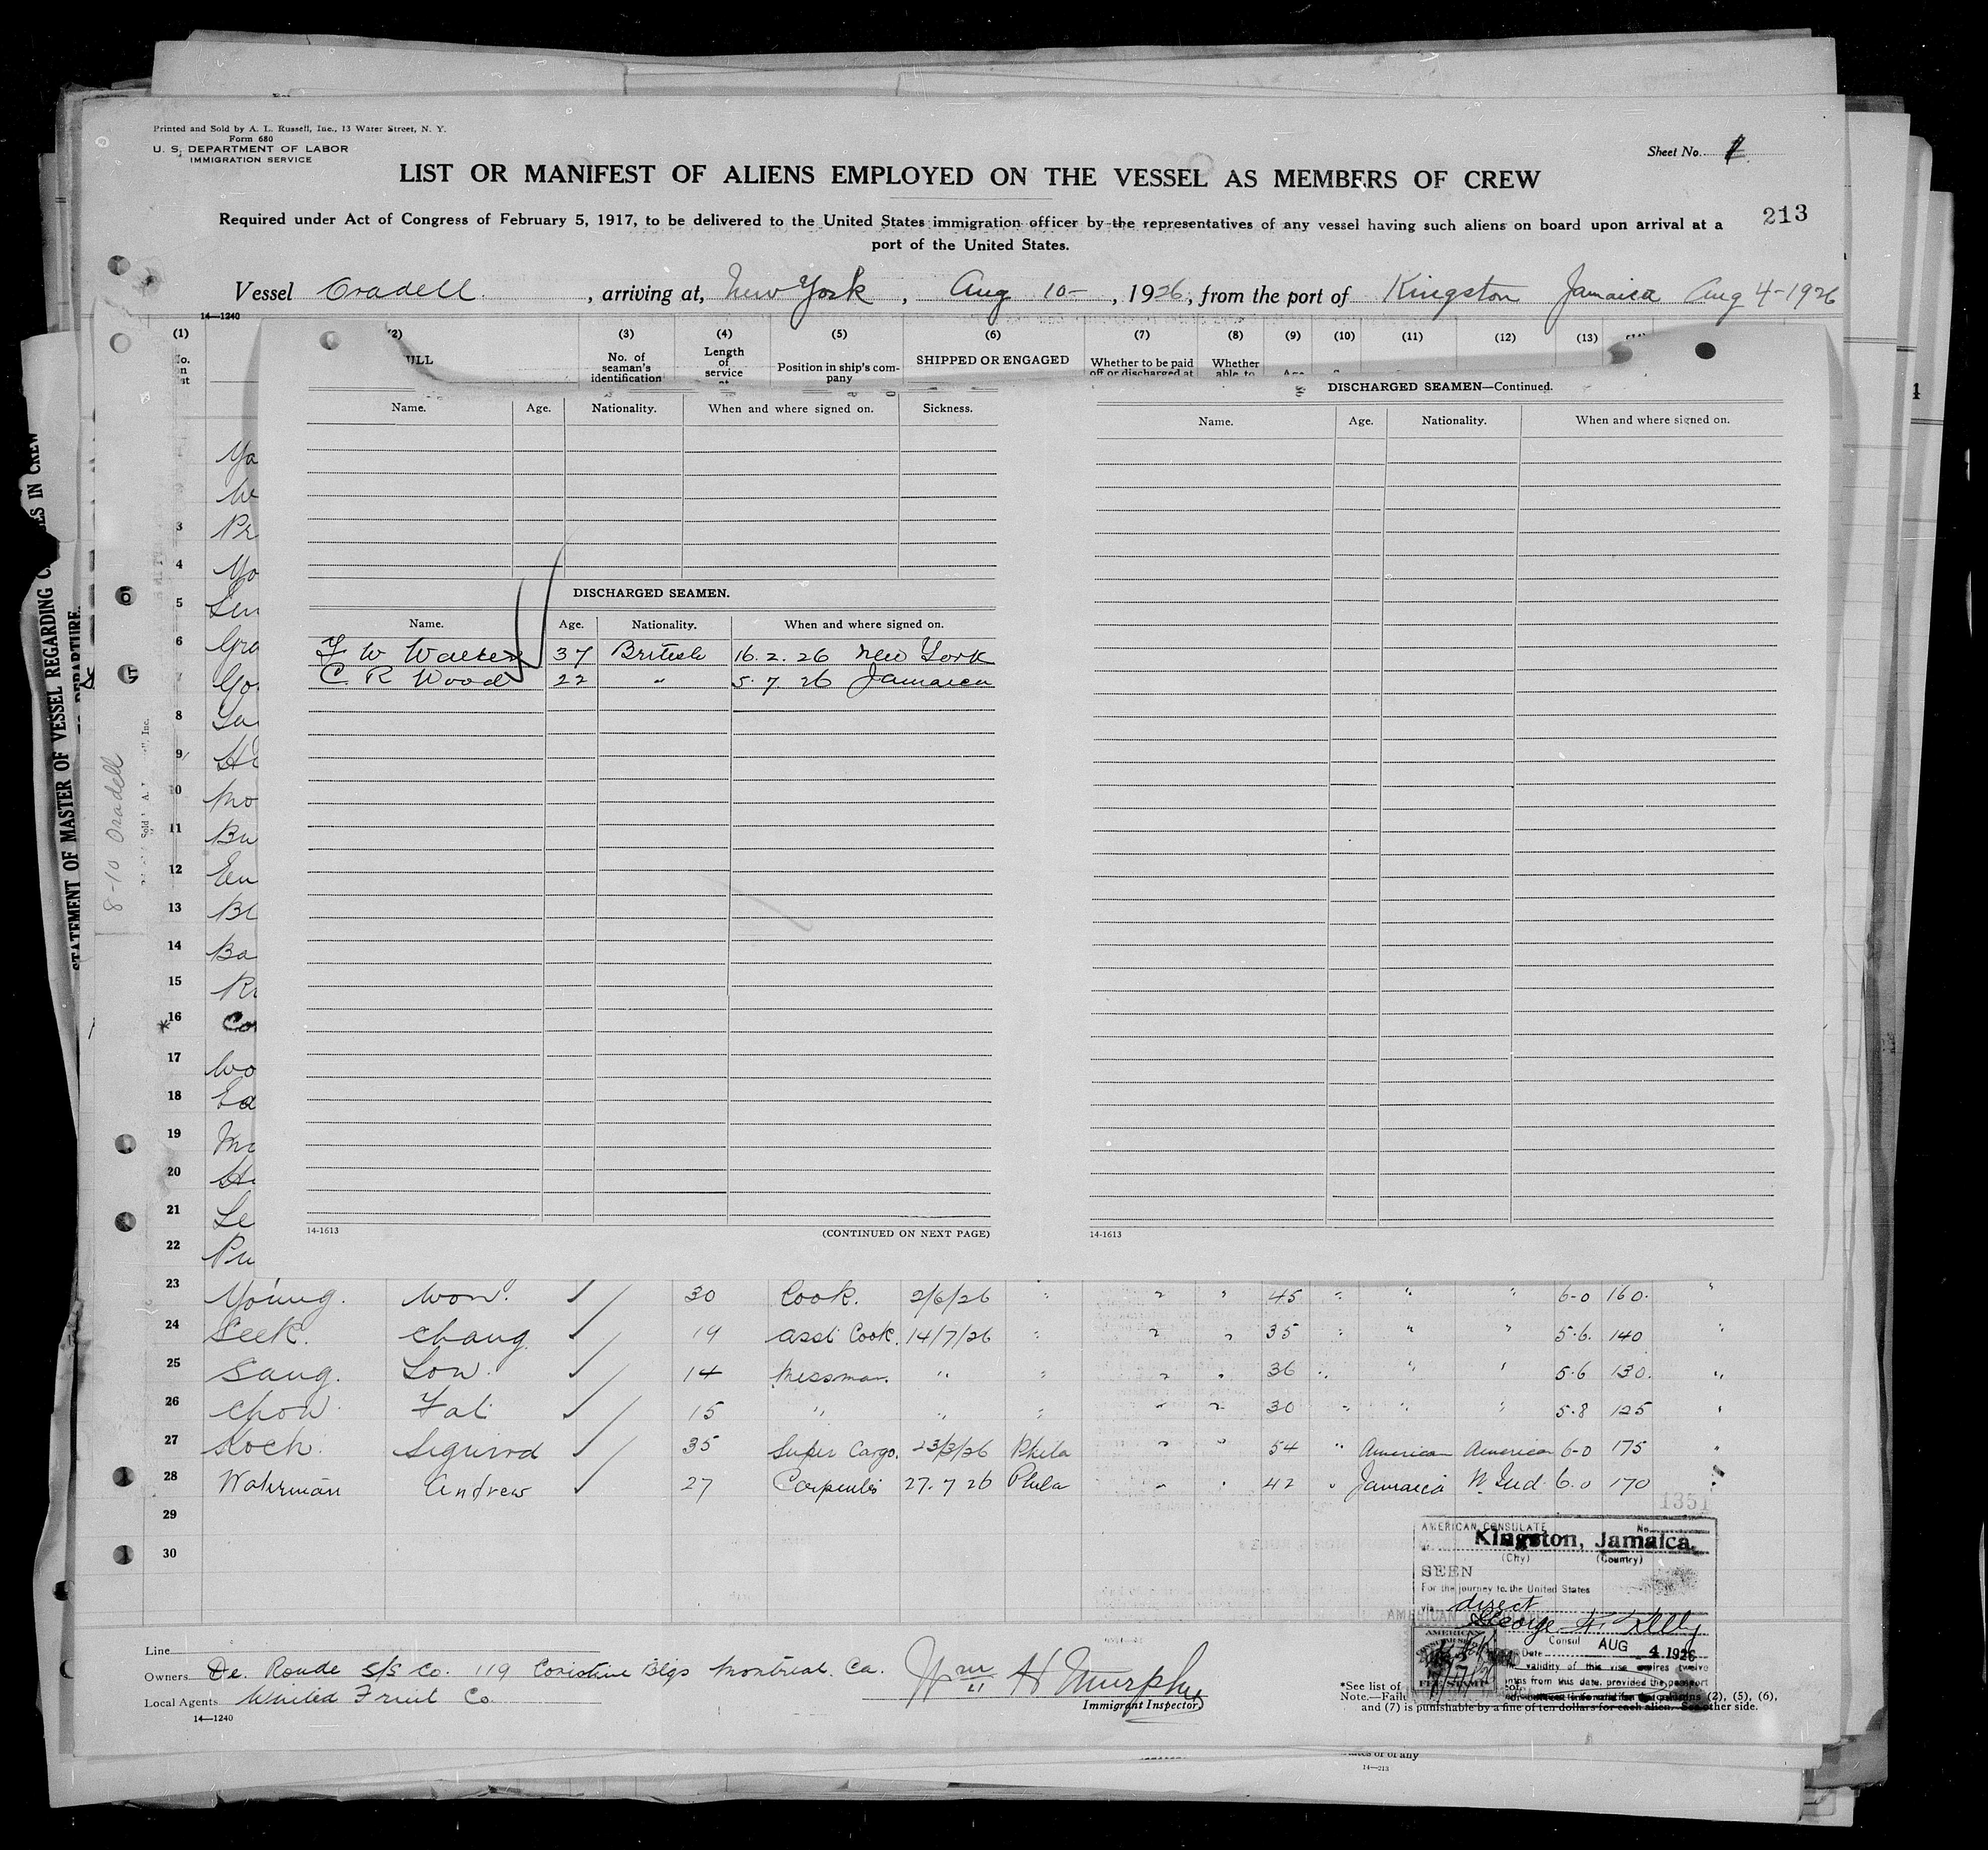 Printed and Sold by A. L. Russell, Inc., 13 Water Street, N. Y.
Form 680
U. S. DEPARTMENT OF LABOR
IMMIGRATION SERVICE
Sheet No.
LIST OR MANIFEST OF ALIENS EMPLOYED ON THE VESSEL AS MEMBERS OF CREW
213
Required under Act of Congress of February 5, 1917, to be delivered to the United States immigration officer by the representatives of any vessel having such aliens on board upon arrival at a
port of the United States.
Vessel Oradell. , arriving at, New York , Aug 10- , 1926, from the port of Kingston Jamaica Aug 4-1926
14—1240
(1) (2) (3) (4) (5) (6) (7) (8) (9) (10) (11) (12) (13)
No. of seaman's identification
Length of service
Position in ship's company
SHIPPED OR ENGAGED
Whether to be paid off or discharged at
Whether able to
Name. Age. Nationality. When and where signed on. Sickness.
DISCHARGED SEAMEN.
Name. Age. Nationality. When and where signed on.
F W Walters 37 British 16. 2. 26 New York
C. R Wood 22 " 5. 7. 26 Jamaica
14-1613 (CONTINUED ON NEXT PAGE)
DISCHARGED SEAMEN—Continued.
Name. Age. Nationality. When and where signed on.
14-1613
STATEMENT OF MASTER OF VESSEL REGARDING
IN CREW
DEPARTURE
8-10 Oradell
3 Pr
4 Yo
5
6 Gra
7 Yo
8
9
10 Mo
11 Bu
12
13 Bl
14 Ba
15
16 Co
17 Wo
18 Ea
19
20
21 Le
22 Pu
23 Young. Won. 30 Cook. 2/6/26 " " " 45 " " " 6-0 160. "
24 Seek. Chang 19 asst Cook. 14/7/26 " " " 35 " " " 5.6. 140 "
25 Sang. Low. 14 Messman. " " " " 36 " " " 5.6 130. "
26 Chow Fat 15 " " " " " 30 " " " 5.8 125 "
27 Koch. Sigurrd 35 Super Cargo. 23/3/26 Phila " " 54 " American American 6-0 175 "
28 Waterman Andrew 27 Carpenter 27. 7 26 Phila " " 42 " Jamaica W. Ind. 6.0 170 "
29
30
1351
AMERICAN CONSULATE
No.
Kingston, Jamaica.
(City) (Country)
SEEN
For the journey to the United States
via direct
George F. Kelly
Consul
Date AUG 4 1926
validity of this vise expires twelve
from this date, provided the passport
AMERICAN
FEE STAMP
Line
Owners De. Ronde S/S Co. 119 Coristine Bldgs Montreal. Ca.
Local Agents United Fruit Co
14—1240
Wm H Murphy
Immigrant Inspector.
*See list of
(2), (5), (6),
and (7) is punishable by a fine of ten dollars for each alien. See other side.
14—213